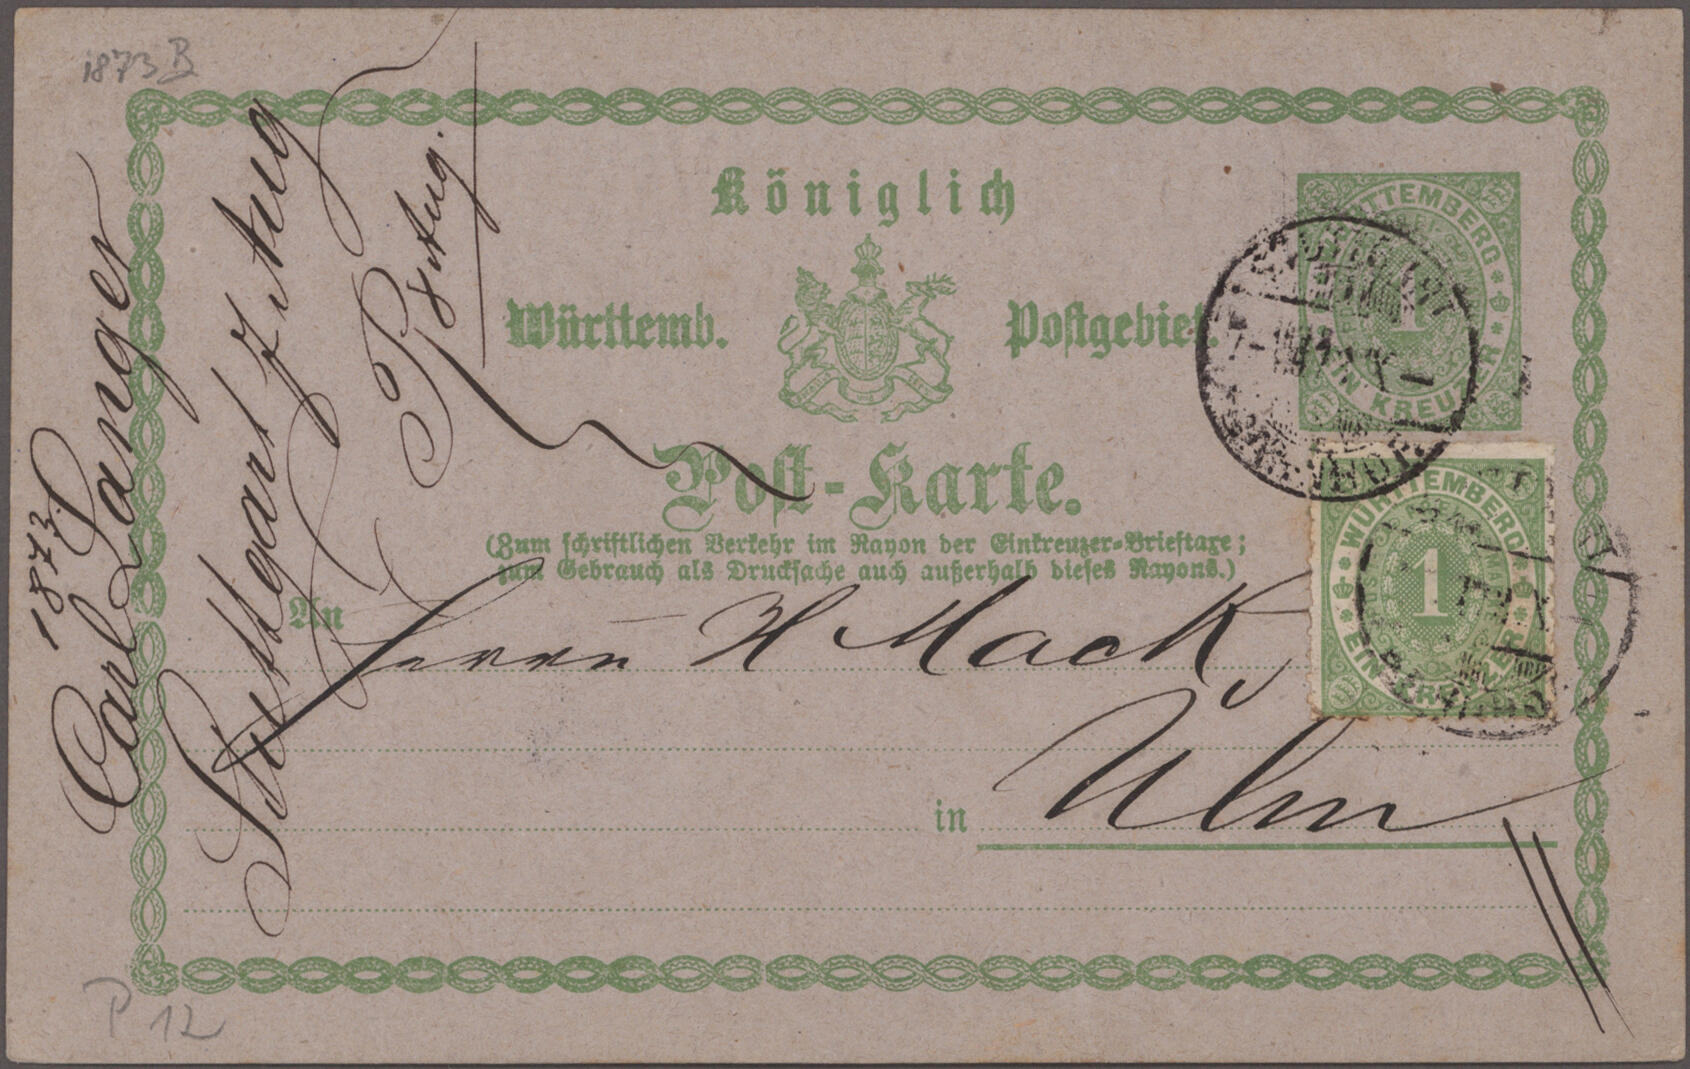 1873 B
Königlich
Württemb. Postgebiet.
Post-Karte.
(Zum schriftlichen Verkehr im Rayon der Einkreuzer-Brieftaxe;
zum Gebrauch als Drucksache auch außerhalb dieses Rayons.)
An Herrn H Mack
in Ulm
WÜRTTEMBERG
EIN KREUZER
1
WÜRTTEMBERG
EIN KREUZER
1
STUTTGART
1873
Carl Langer
Stuttgart 7 Aug
8 Aug.
P 12